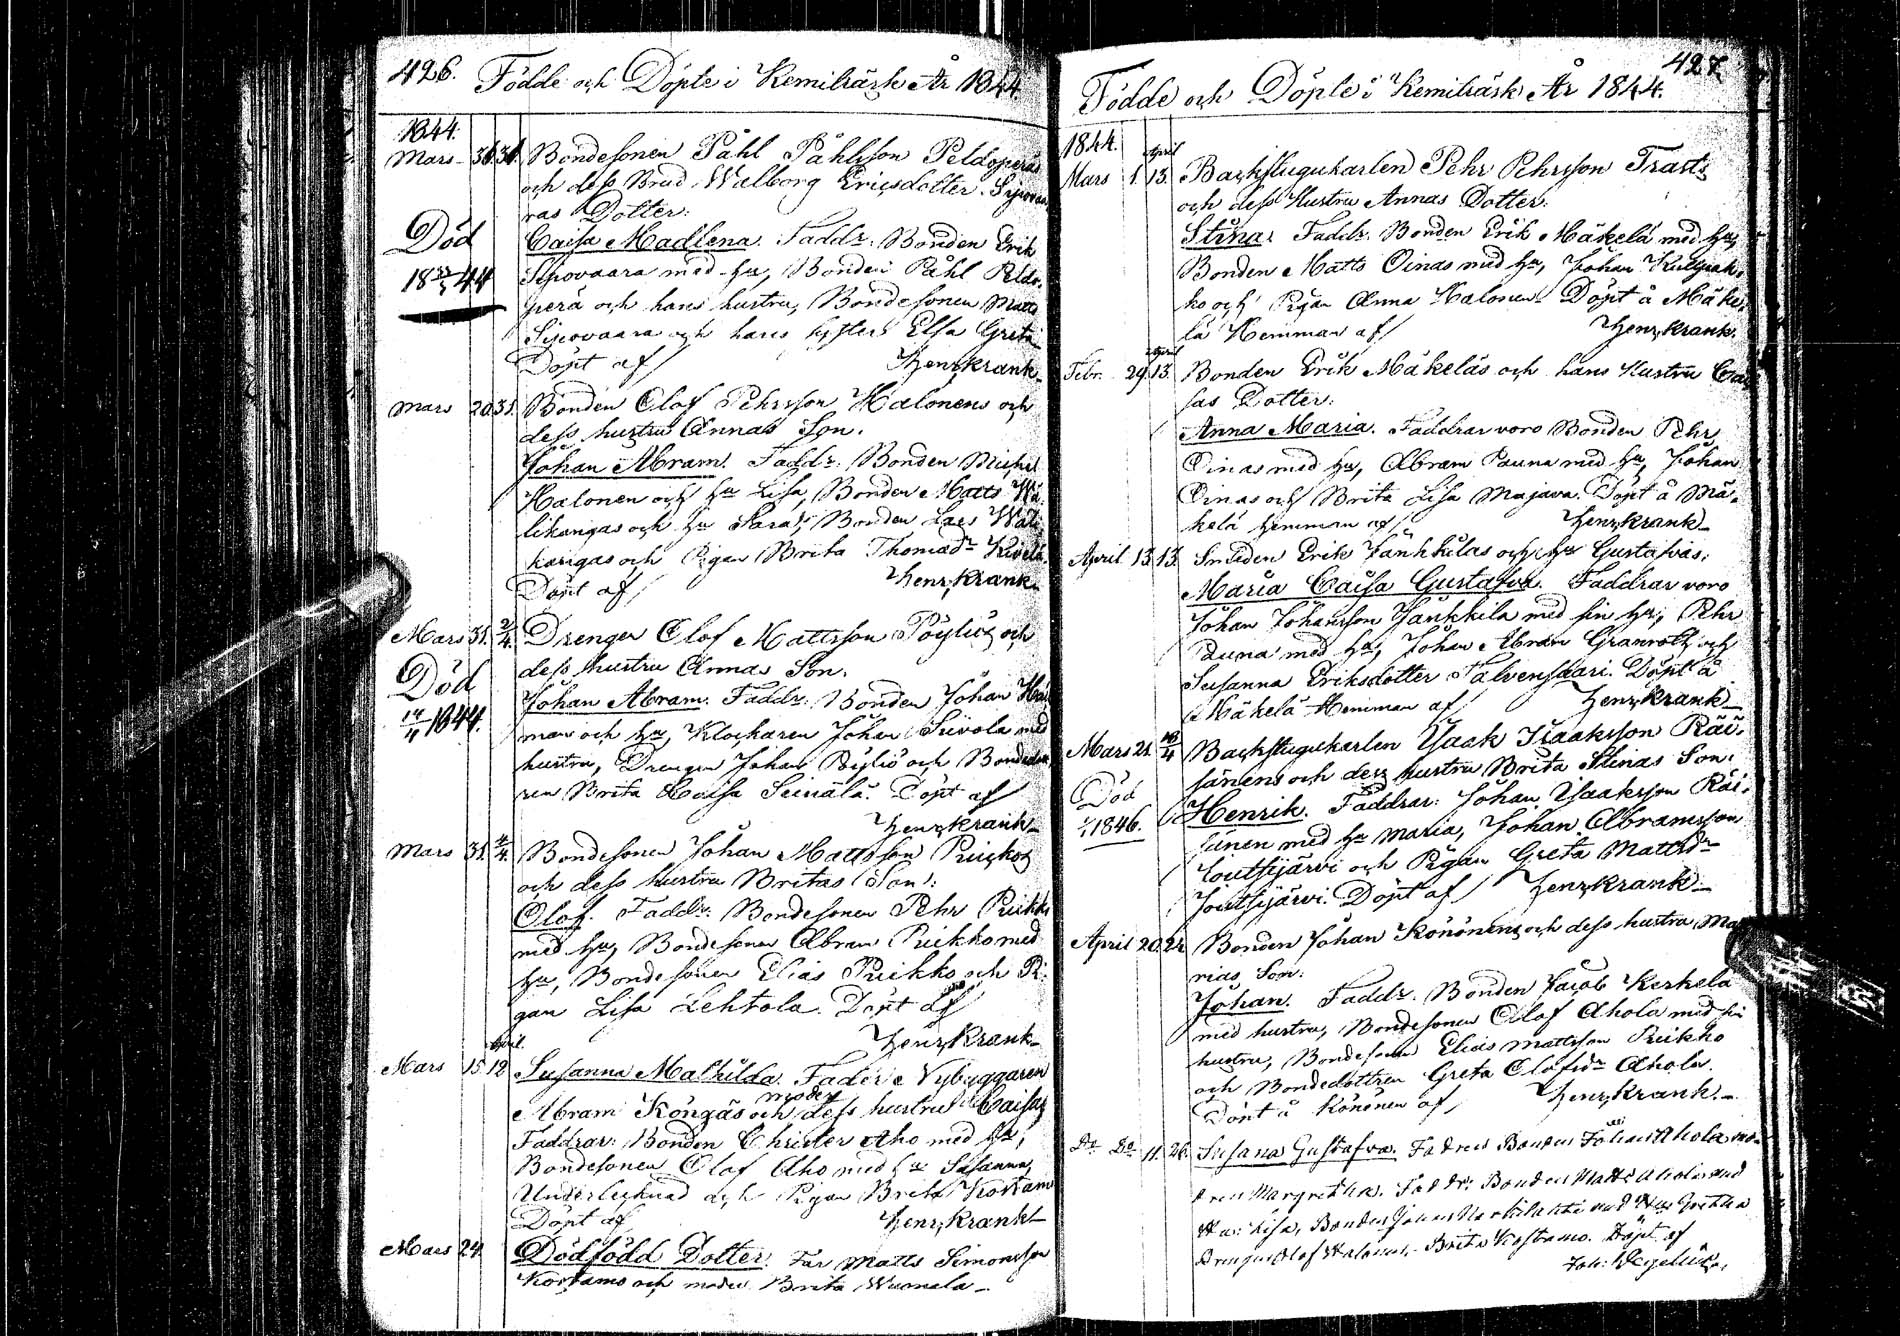 426. Födde och Döpte i Kemiträsk År 1844.
1844.
Mars 31. 31. Bondesonen Påhl Påhlsson Peldoperas
och dess Brud Walborg Ericsdotter Sipovaa
ras Dotter:
Död Caisa Madlena. Faddr. Bonden Erik
1844 Sipovaara med hu, Bonden Påhl Peldo
perä och hans hustru, Bondesonen Matts
Sipovaara och hans syster Elsa Greta
Döpt af Henr. Krank
Mars 20 31. Bonden Olof Pehrsson Halonens och
dess hustru Annas Son.
Johan Abram. Faddr. Bonden Michel
Halonen och hu Lisa, Bonden Matts Wä
likangas och hu Sara, Bonden Lars Wäli
kangas och Pigan Brita Thomasdr Kivelä.
Döpt af Henr. Krank
Mars 31. 2/4. Drengen Olof Mattsson Pöyliös och
dess hustru Annas Son.
Död Johan Abram. Faddr. Bonden Johan
14/4 1844. och hu, Klockaren Johan med
hustru, Drengen Johan Pöyliö och Bondedott
ren Brita Caisa Leinälä. Döpt af
Henr. Krank
Mars 31. 4/4. Bondesonen Johan Mattsson Puikkos
och dess hustru Britas Son:
Olof. Faddr. Bondesonen Pehr Puikko
med hu, Bondesonen Abram Puikko med
hu, Bondesonen Elias Puikko och Pi
gan Lisa Lehtola. Döpt af
Henr. Krank
April
Mars 15. 12 Susanna Mathilda. Fader Nybyggaren
moder
Abram Köngäs och dess hustru Caisa
Faddrar: Bonden Christer Aho med hu,
Bondesonen Olof Aho med hu Susanna,
Undertecknad och Pigan Brita Kostamo
Döpt af Henr. Krank
Mars 24. Dödfödd Dotter. Far Matts Simonsson
Kostamo och moder Brita Wuomela
427.
Födde och Döpte i Kemiträsk År 1844.
1844.
April
Mars 1. 13. Backstugukarlen Pehr Pehrsson Trasts
och dess Hustru Annas Dotter:
Stina. Faddr. Bonden Erik Mäkelä med hu,
Bonden Matts Oinas med hu, Johan Kulpak
ko och Pigan Anna Halonen. Döpt å Mäke
lä Hemman af Henr. Krank.
April
Febr. 29. 13. Bonden Erik Mäkeläs och hans Hustru Cai
sas Dotter:
Anna Maria. Faddrar voro Bonden Pehr
Oinas med hu, Abram Pauna med hu, Johan
Oinas och Brita Lisa Majava. Döpt å Mä
kelä hemman af Henr. Krank
April 13. 13. Smeden Erik Jänkkiläs och hu Gustafvas,
Maria Caisa Gustafva. Faddrar voro
Johan Johansson Jänkkilä med sin hu, Pehr
Pauna med hu, Johan Abram Granroth och
Susanna Eriksdotter Talvensaari. Döpt å
Mäkelä Hemman af Henr. Krank
Mars 21. 13/4 Backstugukarlen Isaak Isaaksson Räi
sänens och dess hustru Brita Stinas Son:
Död Henrik. Faddrar: Johan Isaaksson Räi
1846. sänen med hu Maria, Johan Abramsson
Joutsijärvi och Pigan Greta Mattsdr
Joutsijärvi. Döpt af Henr. Krank
April 20. 21 Bonden Johan Könönens och dess hustru Ma
rias Son:
Johan. Faddr. Bonden Jacob Kerkelä
med hustru, Bondesonen Olof Ahola med si
hustru, Bondesonen Elias Mattsson Puikko
och Bondedottren Greta Olofsdr Ahola.
Döpt å Könönen af Henr. Krank.
Do Do 11. 26. Susana Gustafva. Fadren Bonden Johan Ahola mo
dren Margretha. Faddr: Bonden Matts Ahola med
Hu: Lisa, Bonden Johan med Hu Gretha
Drengen Olof Halonen, Brita Kostamo. Döpt af
Joh: Wegelius.